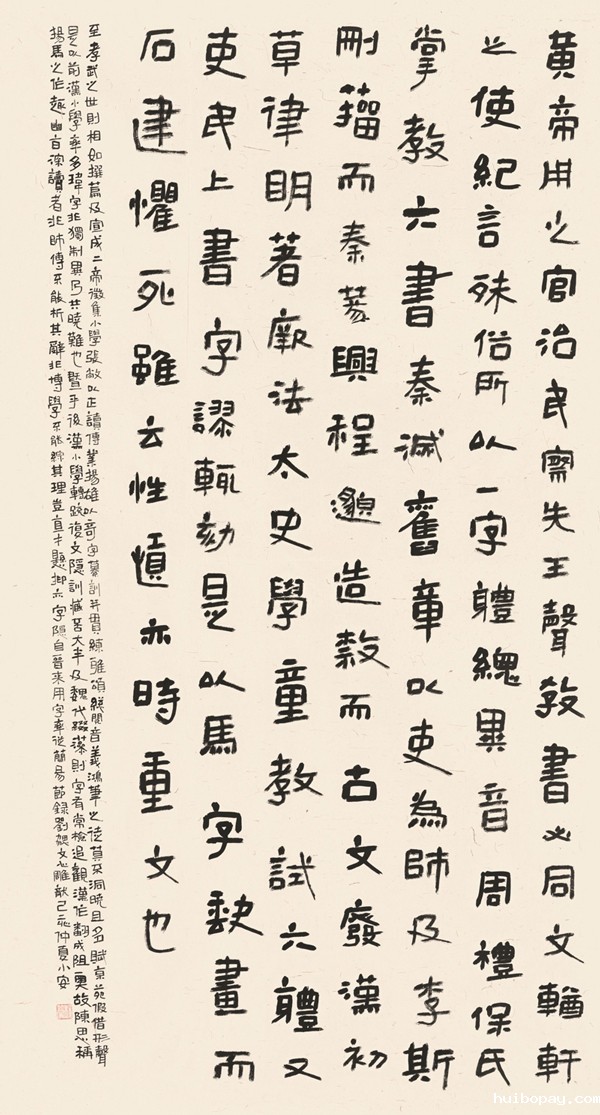 黃帝用之官治民察先王聲教書必同文輶軒
之使紀言殊俗所以一字體總異音周禮保氏
掌教六書秦滅舊章以吏為師及李斯
刪籀而秦篆興程邈造隸而古文廢漢初
草律明著厥法太史學童教試六體又
吏民上書字謬輒劾是以馬字缺畫而
石建懼死雖云性慎亦時重文也
至孝武之世則相如撰篇及宣成二帝徵集小學張敞以正讀傳業揚雄以奇字纂訓並貫練雅頌總閱音義鴻筆之徒莫不洞曉且多賦京苑假借形聲
是以前漢小學率多瑋字非獨制異乃共曉難也暨乎後漢小學轉疎複文隱訓臧否大半及魏代綴藻則字有常檢追觀漢作翻成阻奧故陳思稱
揚馬之作趣幽旨深讀者非師傳不能析其辭非博學不能綜其理豈直才懸抑亦字隱自晉來用字率從簡易節錄劉勰文心雕龍己亥仲夏小安
huibopay.com